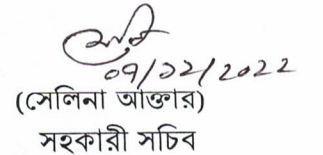 ০৭/১২/২০২২
(সেলিনা আক্তার)
সহকারী সচিব